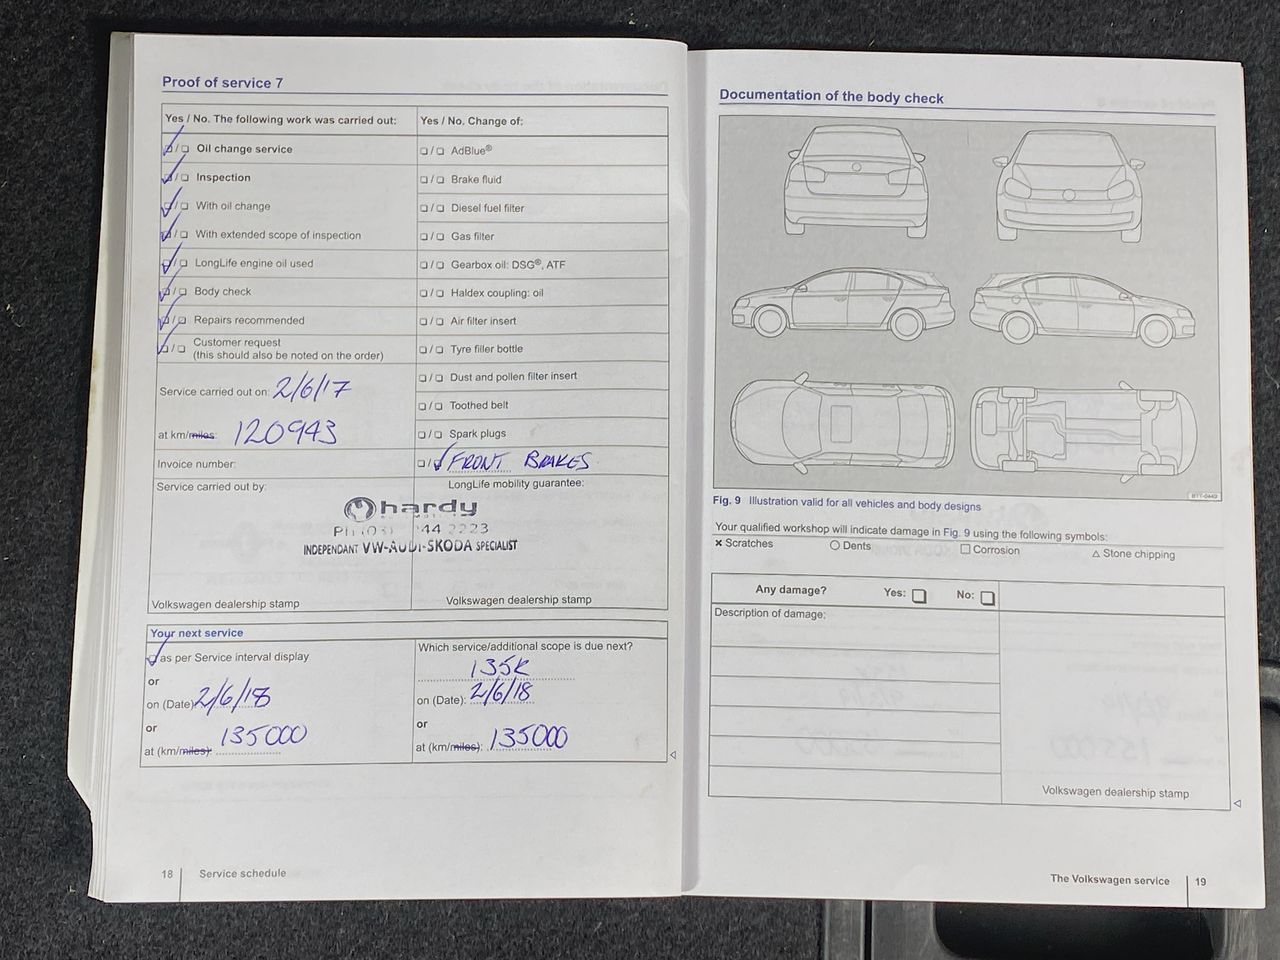 Proof of service 7
Yes / No. The following work was carried out:
Oil change service
Inspection
With oil change
With extended scope of inspection
LongLife engine oil used
Body check
Repairs recommended
Customer request
(this should also be noted on the order)
Service carried out on: 2/6/17
at km/miles: 120943
Invoice number:
Service carried out by:
Yes / No. Change of:
AdBlue®
Brake fluid
Diesel fuel filter
Gas filter
Gearbox oil: DSG®, ATF
Haldex coupling: oil
Air filter insert
Tyre filler bottle
Dust and pollen filter insert
Toothed belt
Spark plugs
FRONT BRAKES
LongLife mobility guarantee:
hardy
2223
INDEPENDANT VW-AUDI-SKODA SPECIALIST
Volkswagen dealership stamp
Volkswagen dealership stamp
Your next service
as per Service interval display
or
on (Date) 2/6/18
or
at (km/miles): 135000
Which service/additional scope is due next?
135K
on (Date): 2/6/18
or
at (km/miles): 135000
18 Service schedule
Documentation of the body check
Fig. 9 Illustration valid for all vehicles and body designs
Your qualified workshop will indicate damage in Fig. 9 using the following symbols:
× Scratches ○ Dents □ Corrosion △ Stone chipping
Any damage? Yes: No:
Description of damage:
Volkswagen dealership stamp
The Volkswagen service 19